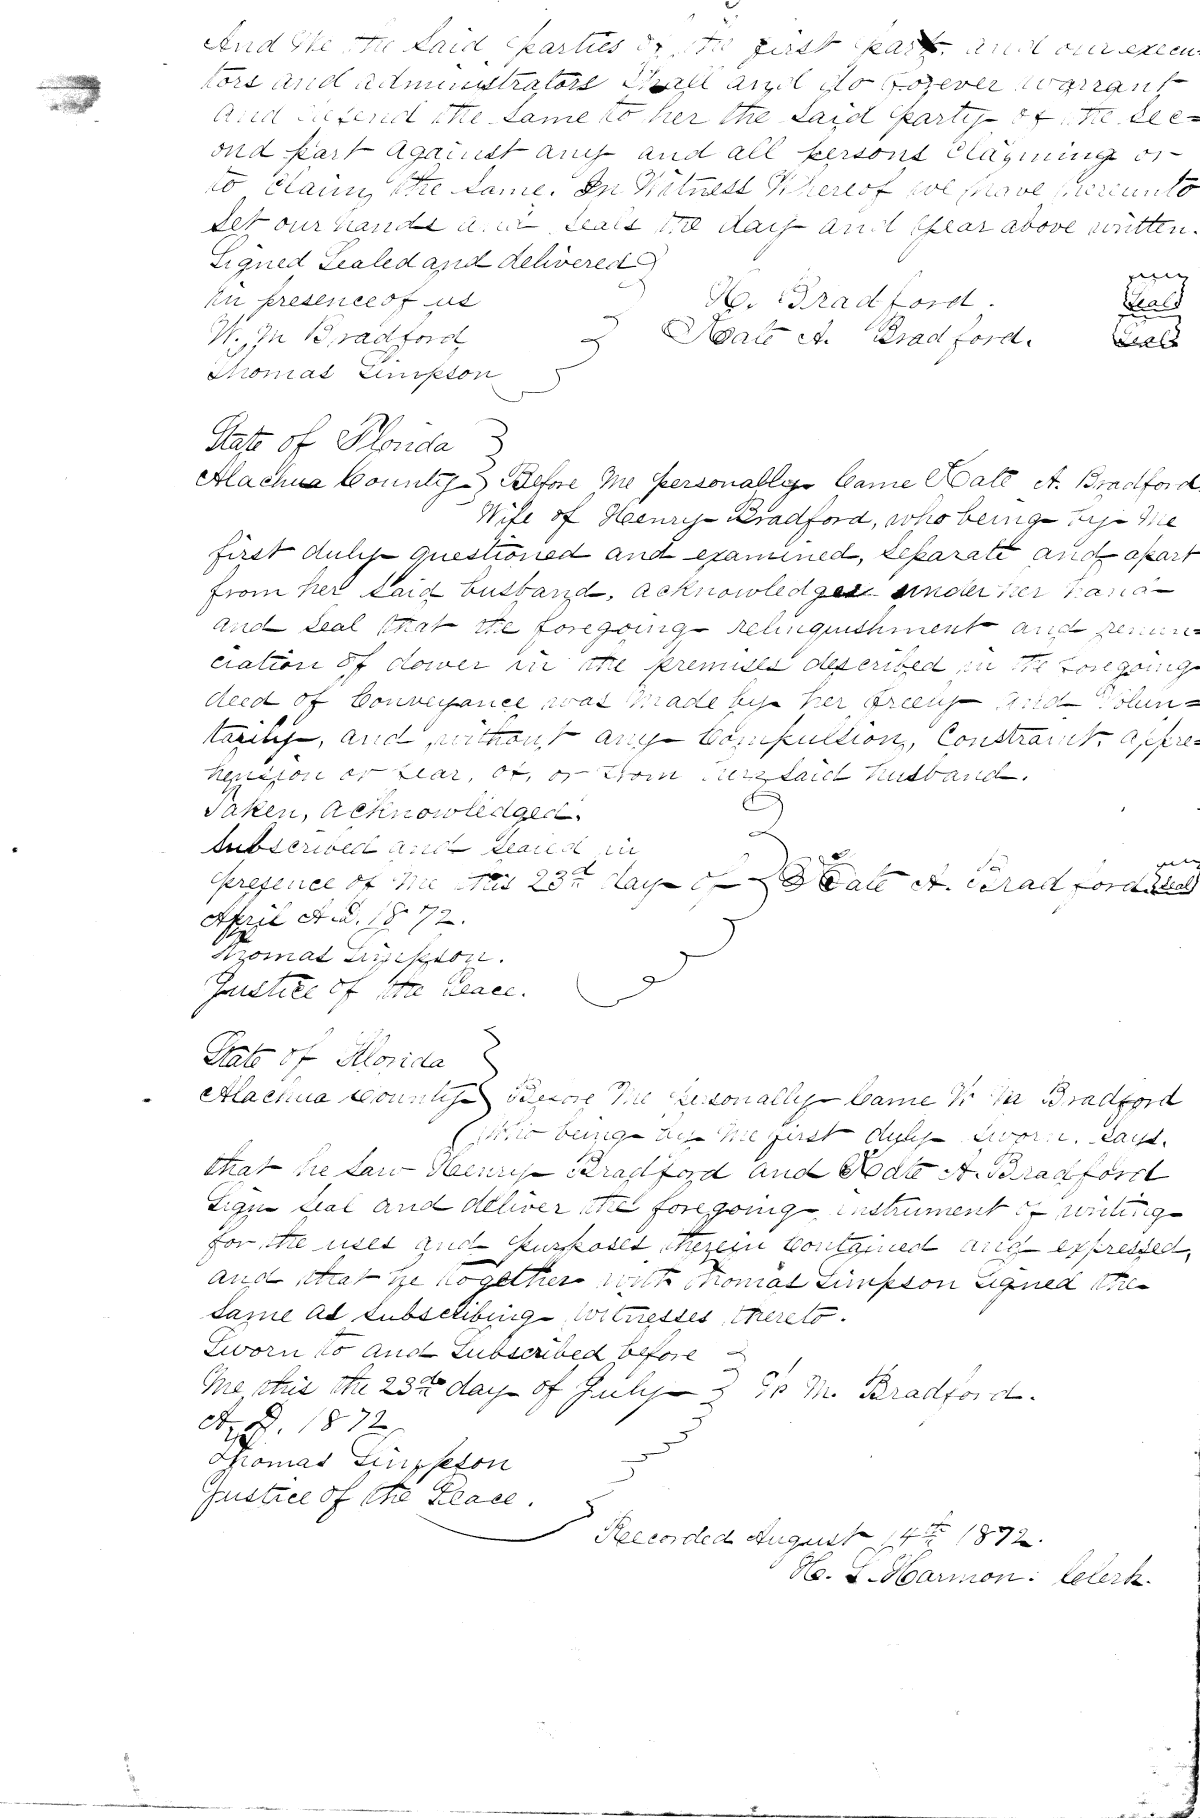 And We the Said parties of the first part, and our execu=
tors and administrators Shall and do forever warrant
and defend the Same to her the Said party of the Sec=
ond part against any and all persons Clayming or
to Claim, the Same. In Witness Whereof we have hereunto
Set our hands and Seals the day and year above written.
Signed Sealed and delivered
in presence of us H. Bradford. Seal
W. M Bradford Kate A. Bradford. Seal
Thomas Simpson
State of Florida
Alachua County Before Me personally Came Kate A. Bradford
Wife of Henry Bradford, who being by Me
first duly questioned and examined, Separate and apart
from her Said husband, acknowledges under her hand
and Seal that the foregoing relinquishment and renun=
ciation of dower in the premises described in the foregoing
deed of Conveyance was Made by her freely and Volun=
tarily, and without any Compulsion, Constraint, appre=
hension or fear, of, or from her Said husband.
Taken, acknowledged,
Subscribed and Sealed in
presence of Me this 23d day of Kate A. Bradford. Seal
April A.D. 1872.
Thomas Simpson.
Justice of the Peace.
State of Florida
Alachua County Before Me personally Came W M Bradford
Who being by Me first duly Sworn, Says,
that he Saw Henry Bradford and Kate A. Bradford
Sign Seal and deliver the foregoing instrument of writing
for the uses and purposes therein Contained and expressed,
and that he together with Thomas Simpson Signed the
Same as Subscribing Witnesses thereto.
Sworn to and Subscribed before
Me, this the 23d day of July W M. Bradford.
A. D. 1872
Thomas Simpson
Justice of the Peace.
Recorded August 14th 1872.
H. S. Harmon. Clerk.